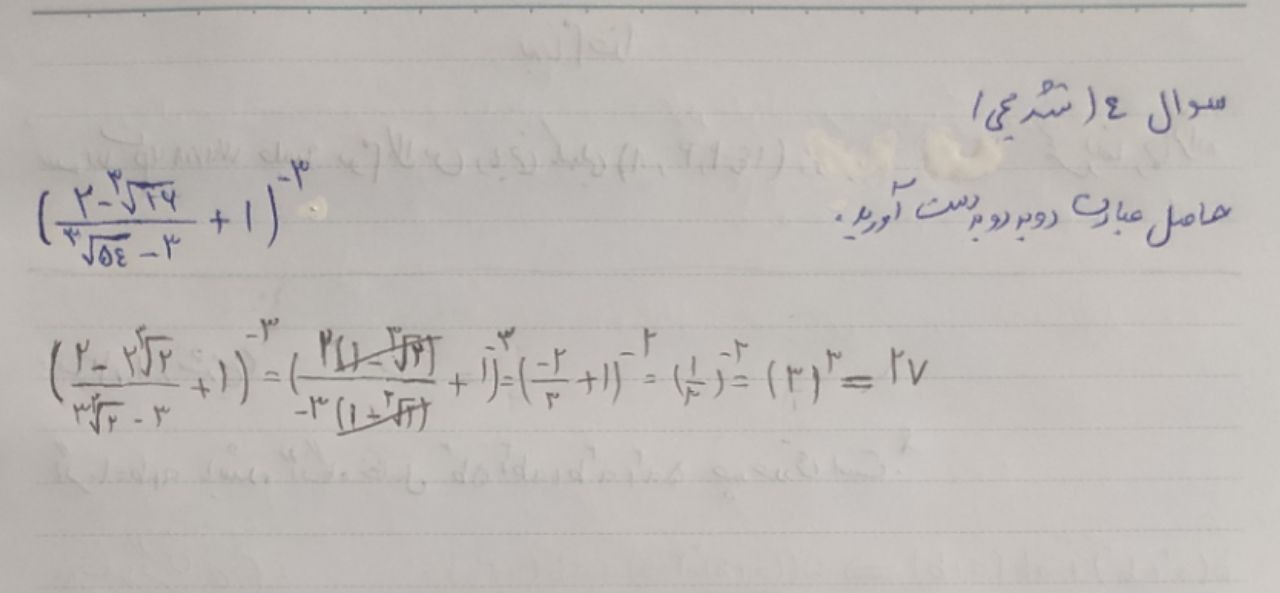 سوال ٤ (تشریحی)
حاصل عبارت روبه‌رو به دست آورید.
(\frac{۲-\sqrt[۳]{۱۶}}{\sqrt[۳]{٥٤}-۳} + ۱)^{-۳}
(\frac{۲-۲\sqrt[۳]{۲}}{۳\sqrt[۳]{۲}-۳} + ۱)^{-۳} = (\frac{۲(۱-\sqrt[۳]{۲})}{-۳(۱-\sqrt[۳]{۲})} + ۱)^{-۳} = (\frac{-۲}{۳} + ۱)^{-۳} = (\frac{۱}{۳})^{-۳} = (۳)^{۳} = ۲۷